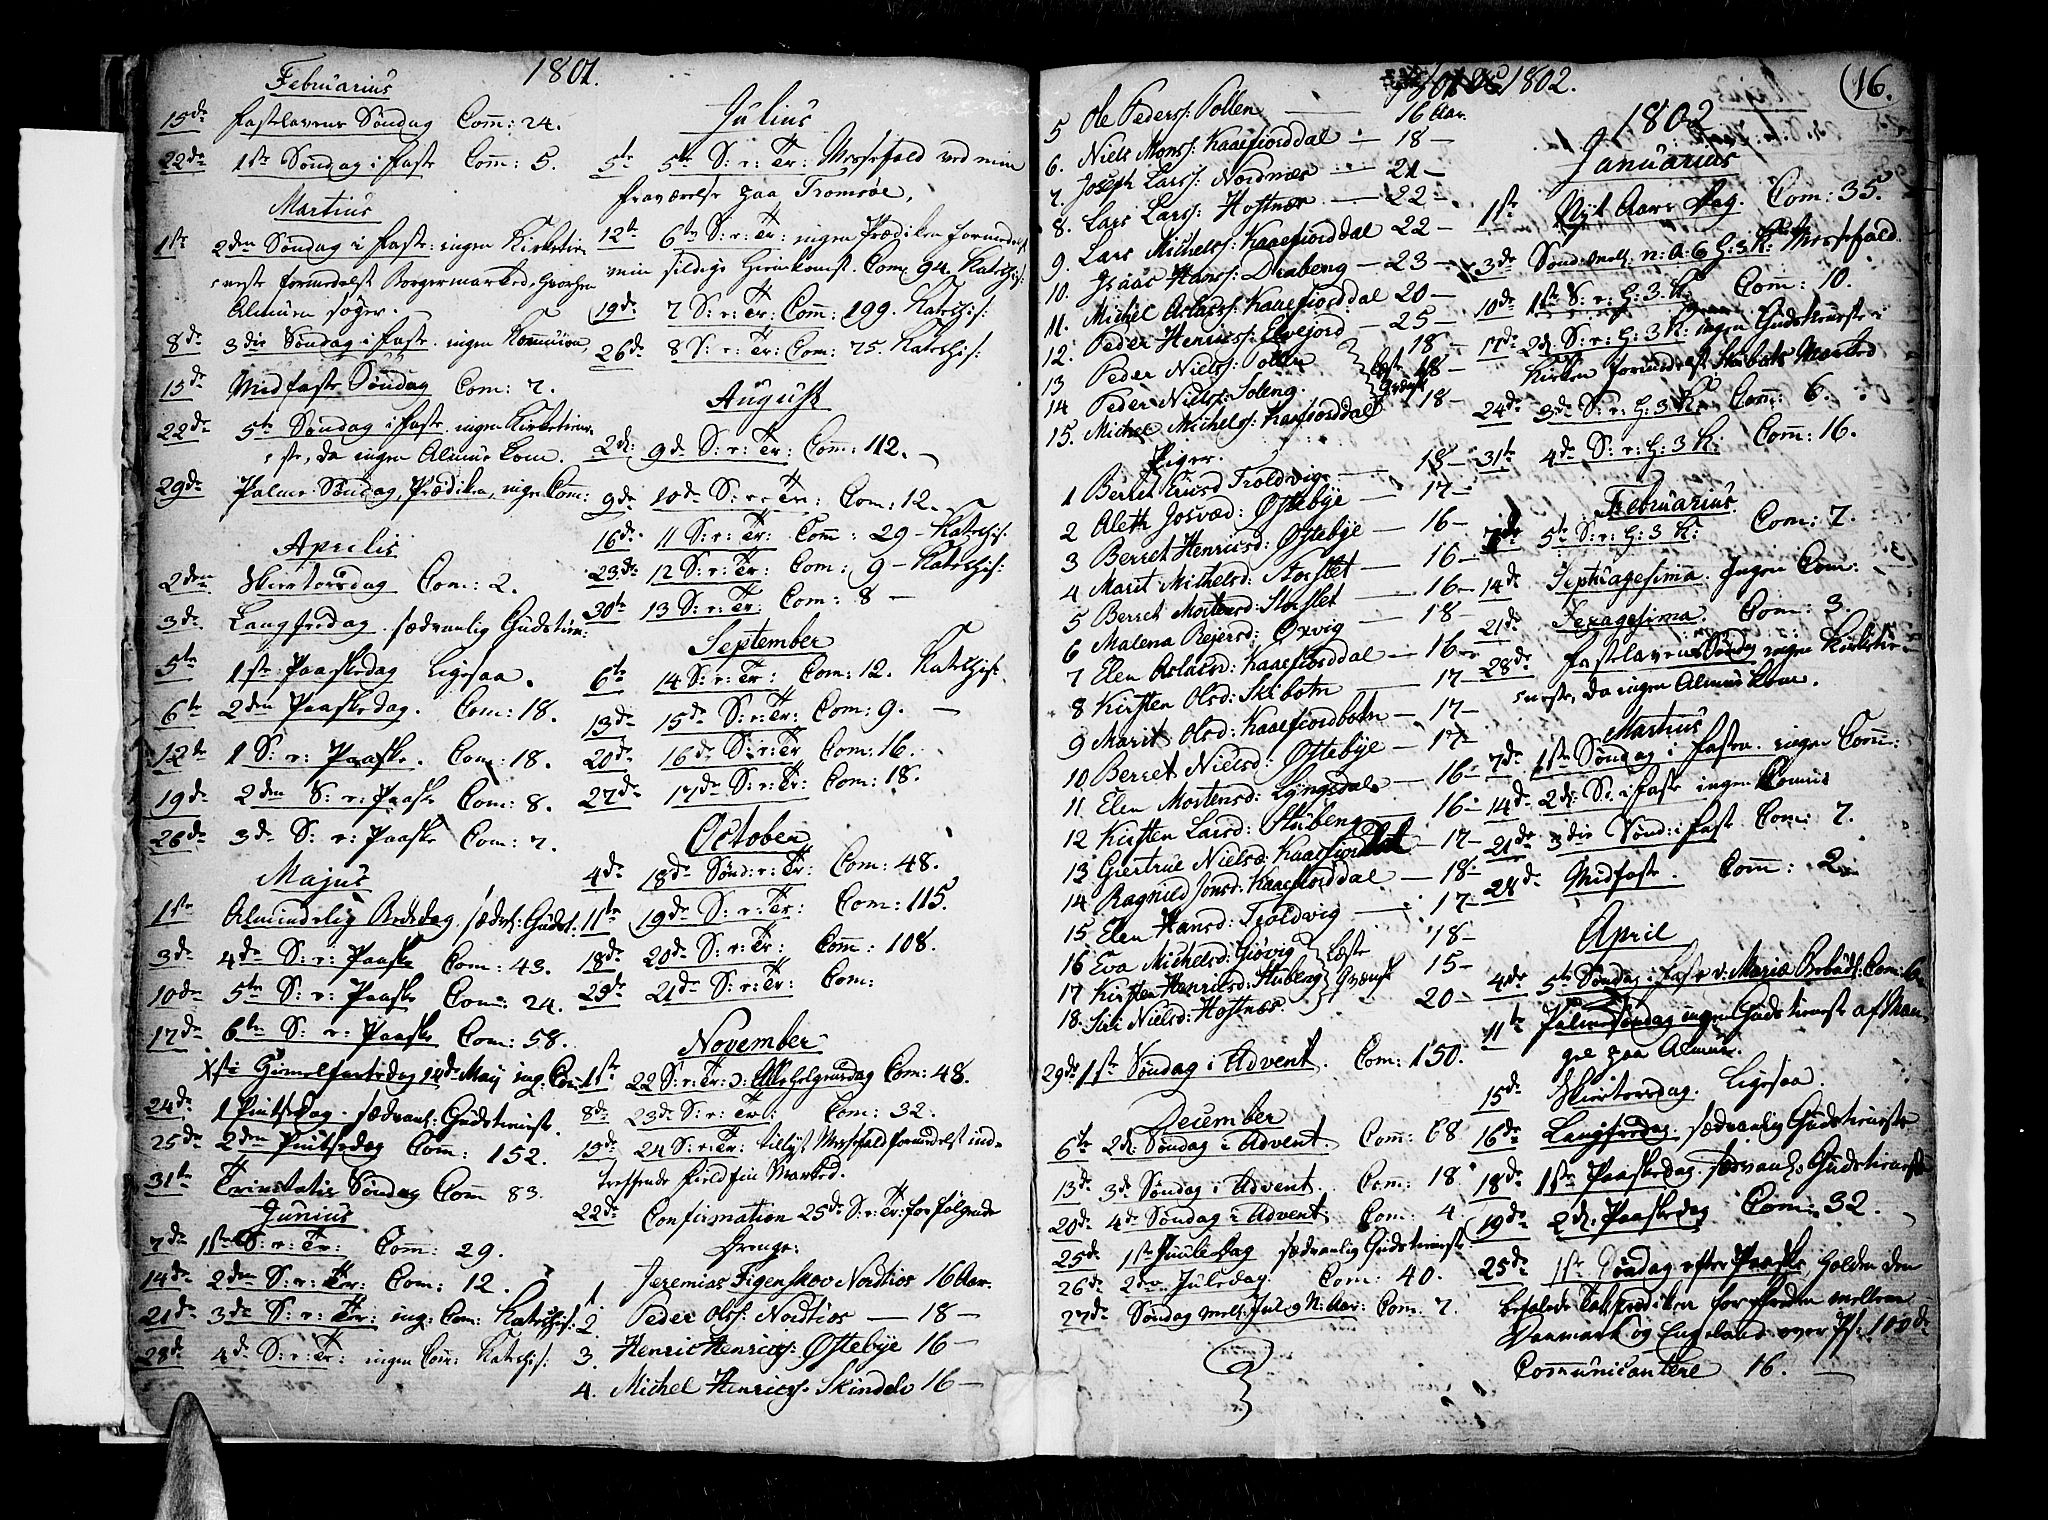 1801.
Februarius
15de Fastelavens Søndag Com: 24.
22de 1ste Søndag i Faste Com: 5.
Martius
1ste 2den Søndag i Faste: ingen Kirketie-
neste formedelst Borgermarked, hvorhen
Almuen søger.
8de 3die Søndag i Faste ingen Kommunion,
15de Midfaste Søndag Com: 7.
22de 5te Søndag i Faste ingen Kirketiene-
ste, da ingen Almue kom.
29de Palme-Søndag, Prædiken, ingen Com:
Aprilis
2den Skiertorsdag Com: 2.
3de Langfredag. sædvanlig Gudstien:
5te 1ste Paaskedag Ligesaa.
6te 2den Paaskedag. Com: 18.
12te 1 S: e: Paaske. Com: 18.
19de 2den S: e: Paaske Com: 8.
26de 3de S: e: Paaske Com: 7.
Majus
1ste Almindelig Bededag, sædv: Gudst.
3de 4de S: e: Paaske Com: 43.
10de 5te S: e: Paaske Com: 24.
17de 6te S: e: Paaske Com: 58.
Christi Himmelfartsdag 14de Maij ing: Com:
24de 1 Pintsedag. sædvanl: Gudstieneste.
25de 2den Pintsedag Com: 152.
31te Trinitatis Søndag Com 83.
Junius
7de 1ste S: e: Tr: Com: 29.
14de 2den S: e: Tr: Com: 12.
21de 3de S: e: Tr: ing: Com: Katechis:
28de 4de S: e: Tr: ingen Com: Katechis:
Julius
5te 5te S: e: Tr: Messefald ved min
fraværelse paa Tromsøe,
12te 6te S: e: Tr: ingen Prædiken formedelst
min sildige Hiemkomst. Com: 94. Katechis:
19de 7 S: e: Tr: Com: 199. Katechis:
26de 8 S: e: Tr: Com: 75. Katechis:
August
2de: 9de S: e: Tr: Com: 112.
9de 10de S: e: Tr: Com: 12.
16de 11 S: e: Tr: Com: 29 - Katechis:
23de 12 S: e: Tr: Com: 9 - Katechis:
30te 13 S: e: Tr: Com: 8 -
September
6te 14 S: e: Tr: Com: 12. Katechis:
13de 15de S: e: Tr: Com: 9. -
20de 16de S: e: Tr Com: 16.
27de 17de S: e: Tr: Com: 18.
October
4de 18de Sønd: e: Tr: Com: 48.
11te 19de S: e: Tr: Com: 115.
18de 20de S: e: Tr: Com: 108.
25de 21de S: e: Tr: Com:
November
1ste 22 S: e: Tr: ɔ: Allehelgensdag Com: 48.
8de 23de S: e: Tr: Com: 32.
15de 24 S: e: Tr: tillyst Messefald formedelst ind-
treffende Field fin Marked.
22de Confirmation 25de S: e: Tr: for følgende
Drenge:
1. Jeremias Figenskov Nordtios 16 Aar.
2. Peder Olss: Nordtios - 18 -
3. Henric Henricss: Øftebye 16 -
4. Michel Henricss: Skindelv 16 -
1802. (16.
5 Ole Pederss: Pollen 16 Aar.
6. Niels Monss: Kaaefiorddal - 18 -
7. Joseph Larss: Nordnæs - 21 -
8. Lars Larss: Hostnæs - 22 -
9. Lars Michelss: Kaaefiorddal 22 -
10. Isaac Hanss: Draberg - 23 -
11. Michel Aslacss: Kaaefiorddal 20 -
12. Peder Henricss: Elvejord - 25 -
13 Peder Nielss: Pollen 18 -
14 Peder Nielss: Soleng. Læste 18 -
15. Michel Michelss: Kaaefiorddal Qvænsk 18 -
Piger.
1 Berret Ericsd Troldvig - 18 -
2 Aleth Josvæd: Øftebye - 17 -
3 Berret Henricsd: Øftebye - 16 -
4 Marit Michelsd: Storslet - 16 -
5 Berret Mortensd: Storslet - 16 -
6 Malena Rejersd: Oxvig - 18 -
7 Elen Aslacsd: Kaaefiorddal - 16 -
8 Kirsten Olsd: Skibotn - 17 -
9 Marit Olsd: Kaaefiordbotn - 17 -
10 Berret Nielsd: Øftebye - 17 -
11 Elen Mortensd: Lyngsdal - 16 -
12 Kirsten Larsd: Stubeng 16 -
13 Giertrue Nielsd: Kaaefiorddal - 17 -
14 Ragnild Jonsd: Kaaefiorddal - 18 -
15 Elen Hansd: Troldvig - 17 -
16 Eva Michelsd: Giøvig Læste 18 -
17 Kirsten Henricsd: Stubeng Qvænsk 15 -
18. Siri Nielsd: Hostnæs. 20 -
29de 1ste Søndag i Advent. Com: 150.
December
6te 2de Søndag i Advent. Com: 68.
13de 3de Søndag i Advent. Com: 18.
20de 4de Søndag i Advent. Com: 4.
25de 1ste Juule Dag sædvanlig Gudstieneste
26de 2den Juledag. Com: 40.
27de Søndag mell: Jul og N: Aar: Com: 7.
1802
Januarius
1ste Nyt Aars Dag. Com: 35.
3de Sønd: mell: n: A: & H: 3 K: Messefald.
10de 1ste S: e: H: 3 K: Com: 10.
17de 2de S: e: H: 3 K: ingen Gudstieneste i
Kirken formedelst Skibotns Marked
24de 3de S: e: H: 3 K: Com: 6.
31te 4de S: e: H: 3 K: Com: 16.
Februarius
7de 5te S: e: H: 3 K: Com: 7.
14de Septuagesima. Ingen Com:
21de Sexagesima. Com: 3.
28de Fastelavens Søndag ingen Kirketie-
neste, da ingen Almue kom.
Martius
7de 1ste Søndag i Fasten. ingen Com:
14de 2de: S: i Faste ingen Comun
21de 3die Sønd: i Fast Com: 7.
28de Midfaste. Com: 2
April
4de 5te Søndag i Faste ɔ: Mariæ Bebud: Com: 6-
11te Palmesøndag ingen Gudstieneste af Man-
gel paa Almue.
15de Skiertorsdag. Ligesaa.
16de Langfredag. sædvanlig Gudstieneste
18de 1ste Paaskedag. sædvanl: Gudstieneste
19de 2de: Paaskedag Com: 32.
25de 1ste Søndag efter Paaske Holden den
befalede Takprædiken for Freden mellem
Danmark og Engeland over Ps: 100de
Communicantere 16. -